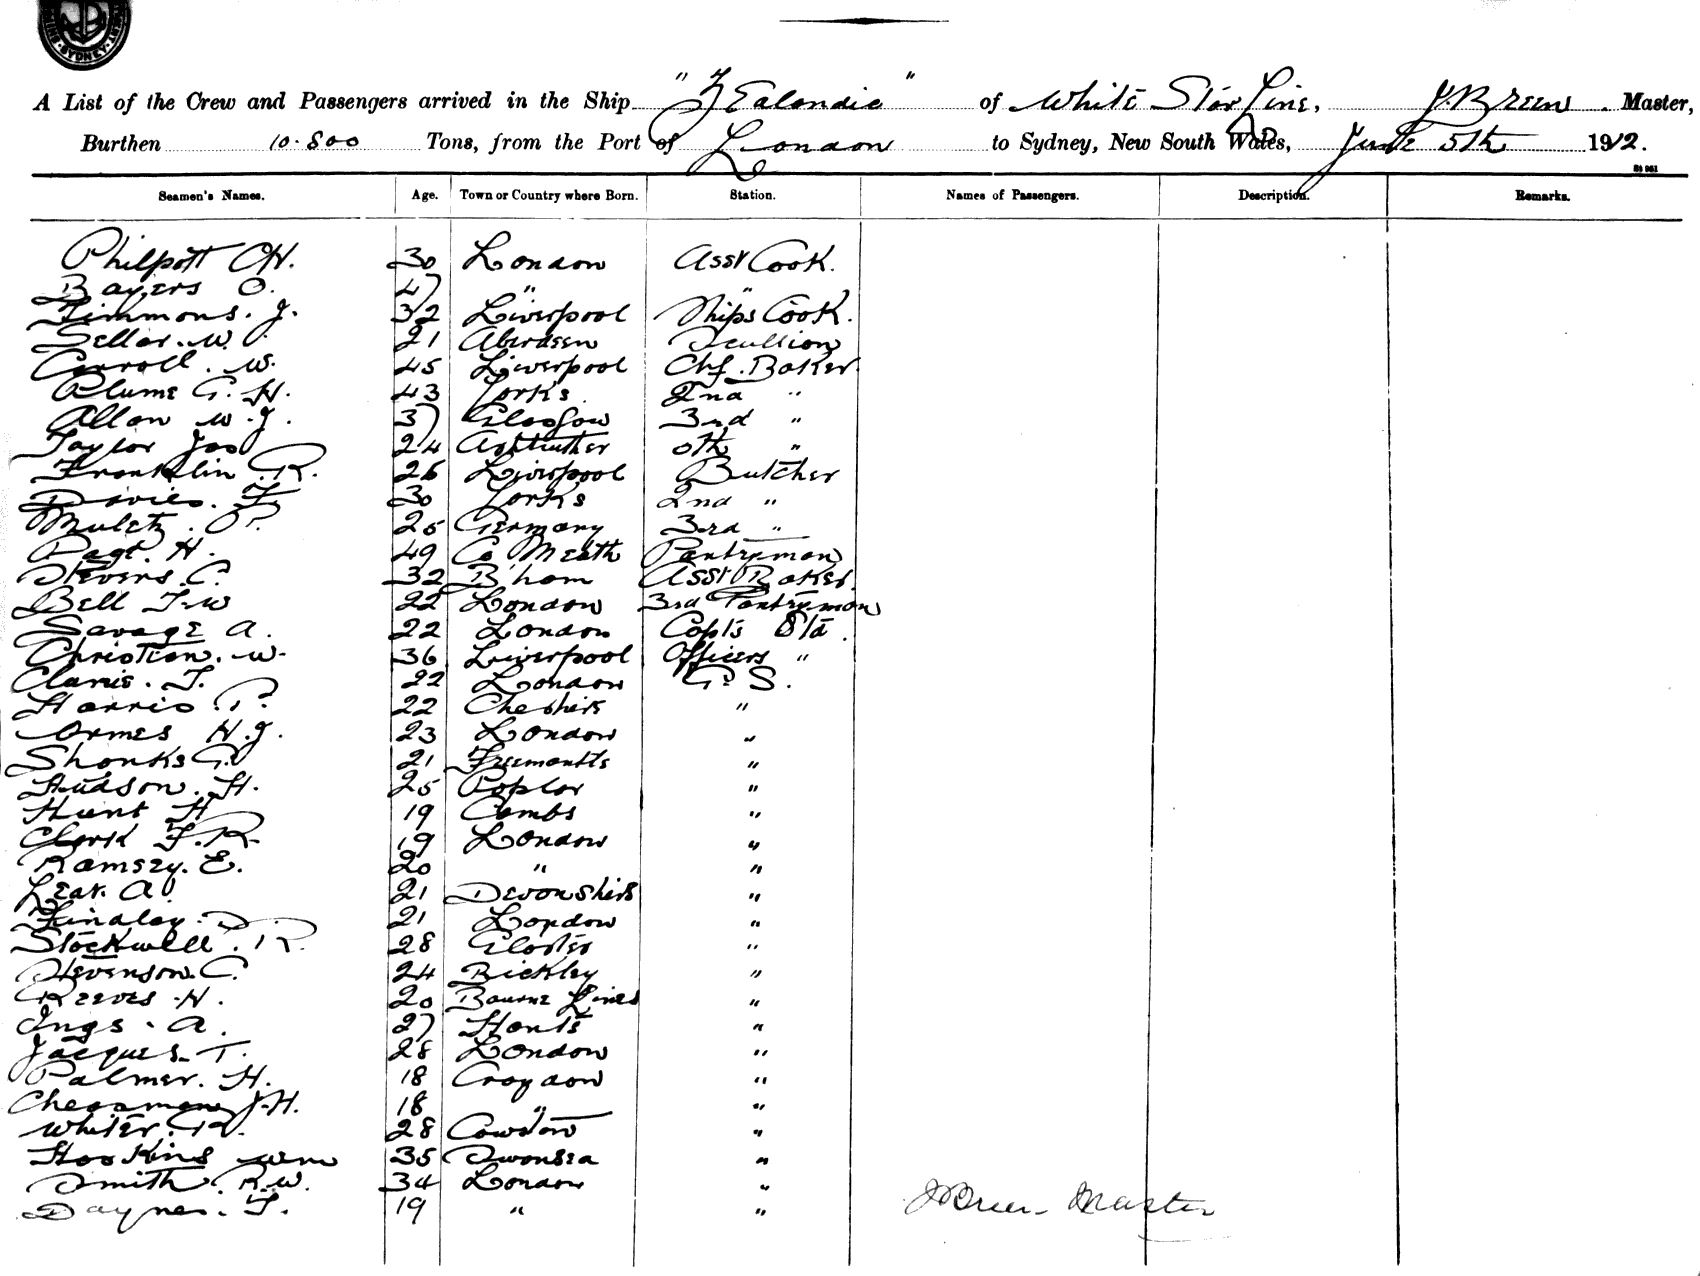 SYDNEY
A List of the Crew and Passengers arrived in the Ship "Zealandic" of White Star Line, J. Breen. Master,
Burthen 10.800 Tons, from the Port of London to Sydney, New South Wales, June 5th 1912.
Seamen's Names. Age. Town or Country where Born. Station. Names of Passengers. Description. Remarks.
Philpott CH. 30 London Asst Cook.
Bayers O. 47 " "
Timmons. J. 32 Liverpool Ships Cook.
Sellar. W. 21 Aberdeen Scullion
Carroll. W. 45 Liverpool Chf. Baker
Plume G. H. 43 Yorks. 2nd "
Allan W. J. 37 Glasgow 3rd "
Taylor Jas 24 "
Franklin. R. 26 Liverpool Butcher
Davies. F. 30 Yorks 2nd "
25 Germany 3rd "
H. 49 Co Meath Pantryman
Stevens. C. 32 B'ham Asst Baker.
Bell T.W 22 London 3rd Pantryman
Savage A. 22 London Capts Std.
Christian. W. 36 Liverpool Officers "
T. 22 London G. S.
Harris. P. 22 Cheshire "
Ormes H.J. 23 London "
Shonks G. 21 "
Hudson. H. 25 Poplar "
Hunt H 19 Cambs "
Clark F. R. 19 London "
Ramsey. E. 20 " "
Lear. A. 21 Devonshire "
Findlay. D. 21 London "
Stockwell. R. 28 Gloster "
Stevenson. C. 24 Bickley "
Reeves H. 20 Bourne Lines "
Ings. A. 27 Hants "
Jacques. T. 28 London "
Palmer. H. 18 Croydon "
Chessman J.H. 18 " "
White R. 28 Cowdon "
Hoskins Wm 35 Swansea "
Smith. R.W. 34 London "
Daynes. F. 19 " "
J Breen Master